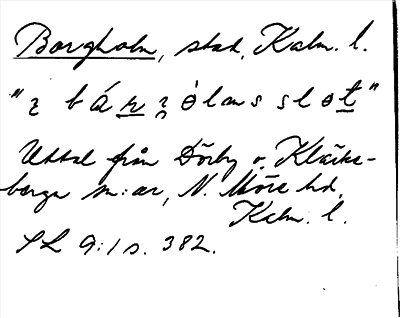 Borgholm, stad, Kalm. l.
"ɿ bá
Uttal från Dörby o. Kläcke-
berga m:ar, N. Möre hd,
Kalm. l.
SL 9:1 s. 382.